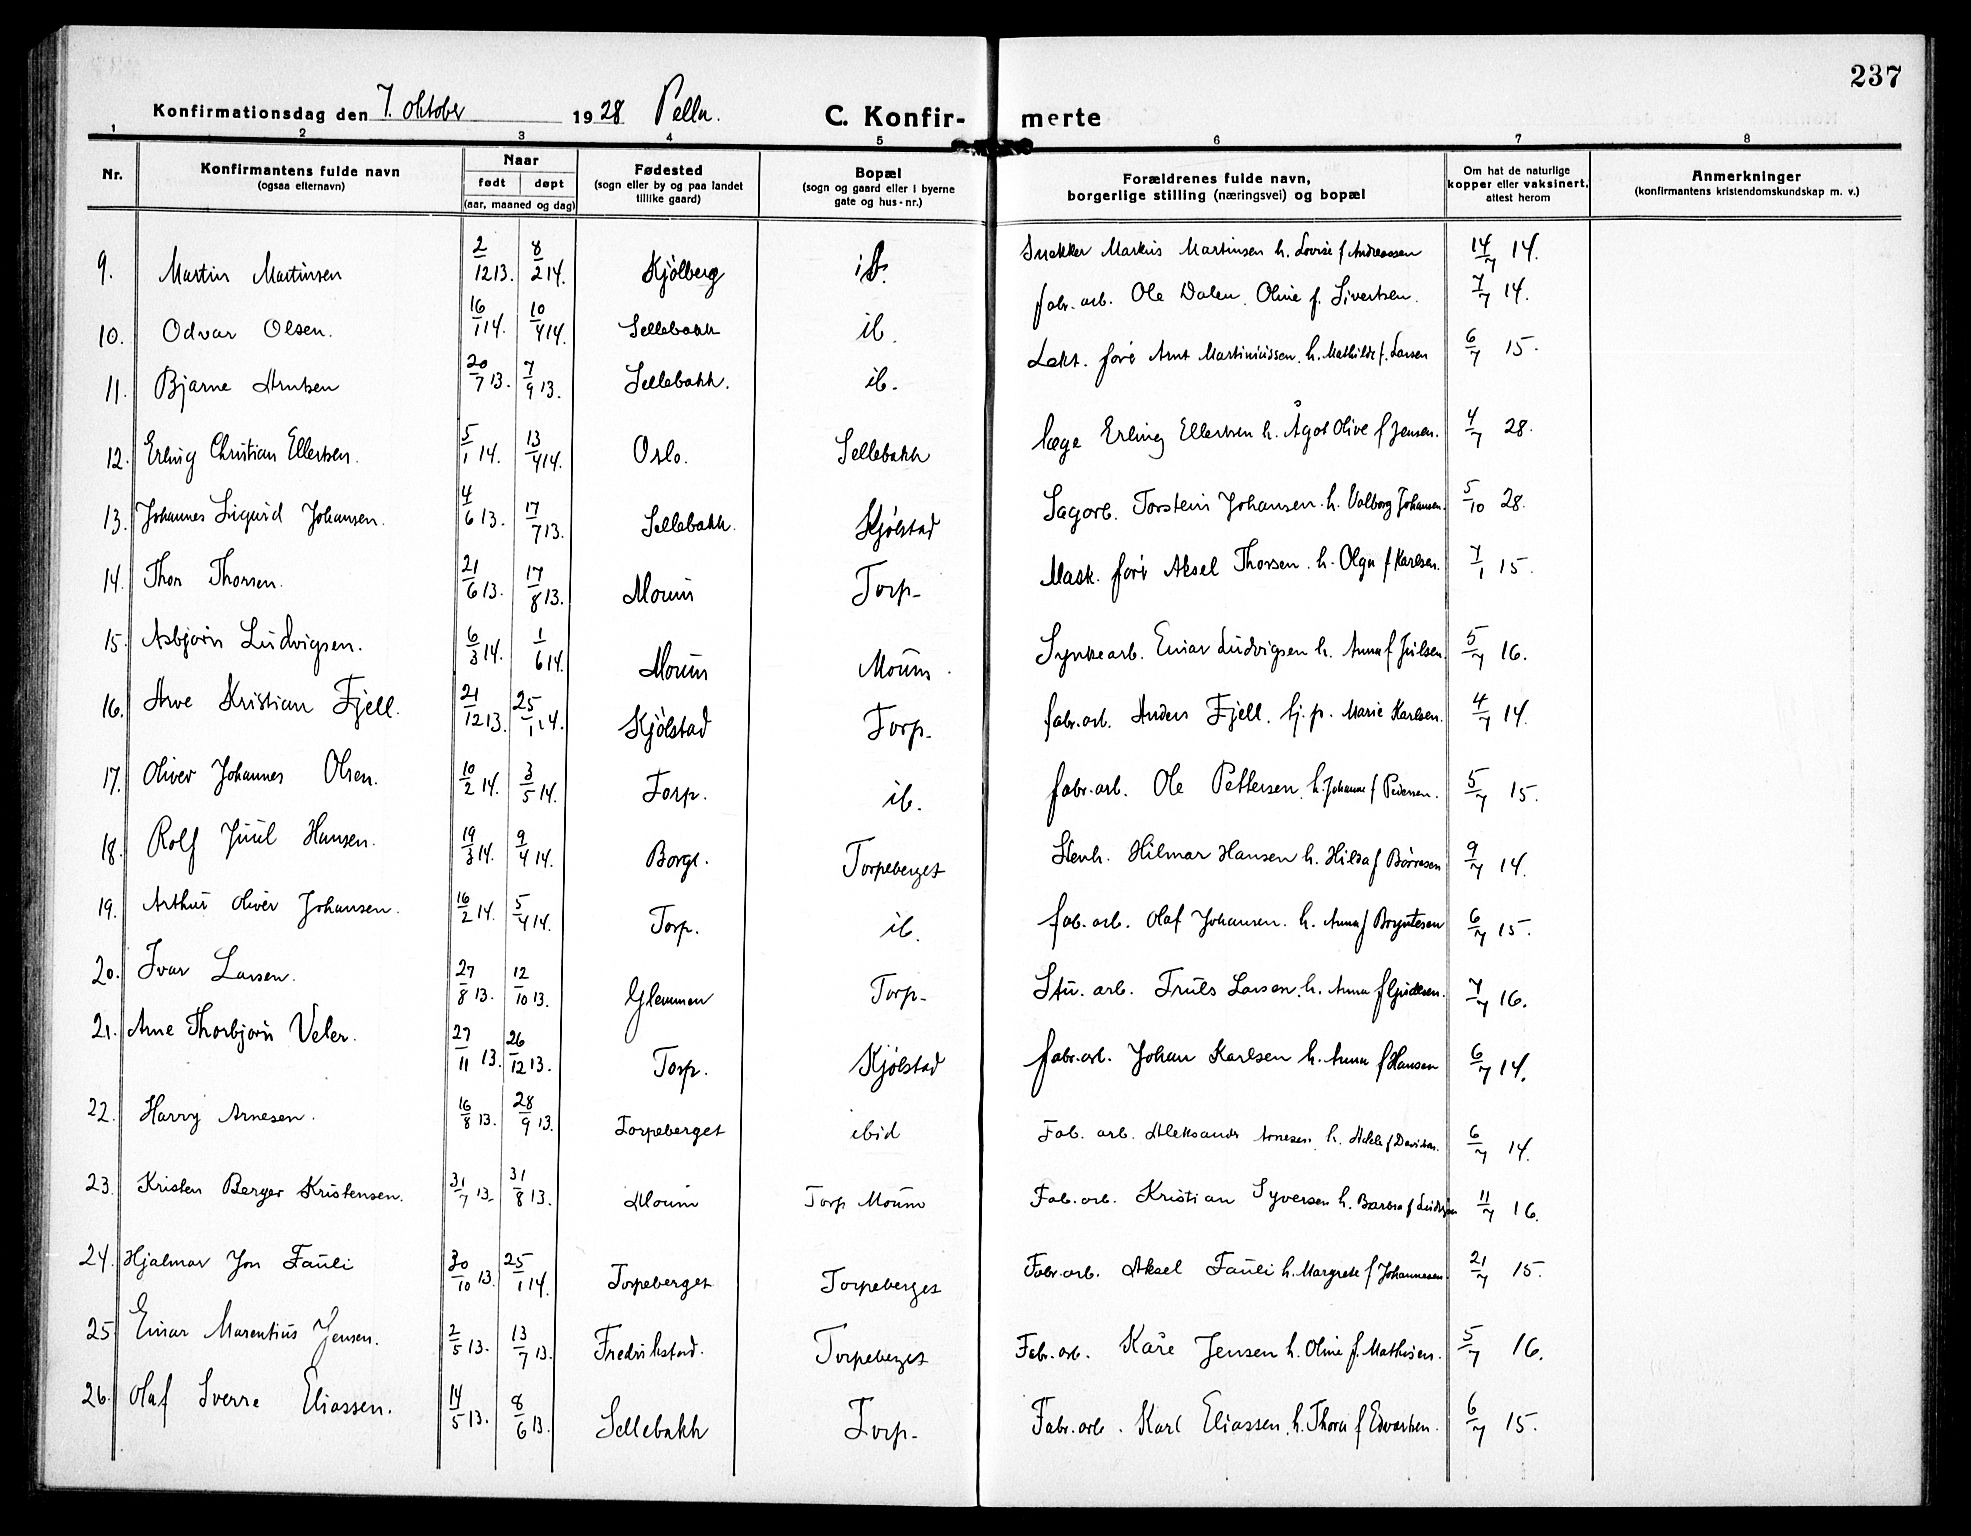 237
Konfirmationsdag den 7. oktober 1928 Pella. C. Konfirmerte
1 2 3 4 5 6 7 8
Nr. Konfirmantens fulde navn (ogsaa efternavn) Naar født døpt (aar, maaned og dag) Fødested (sogn eller by og paa landet tillike gaard) Bopæl (sogn og gaard eller i byerne gate og hus-nr.) Forældrenes fulde navn, borgerlige stilling (næringsvei) og bopæl Om hat de naturlige kopper eller vaksinert, attest herom Anmerkninger (konfirmantens kristendomskundskap m. v.)
9. Martin Martinsen 2/12 13. 8/2 14. Kjölberg ib. Snekker Markus Martinsen h. Lovise f Andreassen 14/7 14.
10. Odvar Olsen. 16/1 14. 10/4 14. Sellebakk ib. fabr. arb. Ole Dalen. Oline f. Sivertsen. 7/7 14.
11. Bjarne Arntsen 20/7 13. 7/9 13. Sellebakk. ib. Lokt. förer Arnt Martiniussen. h. Mathilde f. Larsen 6/7 15.
12. Erling Christian Ellertsen. 5/1 14. 13/4 14. Oslo. Sellebakk læge Erling Ellertsen h. Ågot Olive f Jensen. 4/7 28.
13. Johannes Sigurd Johansen. 4/6 13. 17/7 13. Sellebakk. Kjölstad Sagarb. Torstein Johansen. h. Valborg Johansen. 5/10 28.
14. Thor Thorsen. 21/6 13. 17/8 13. Moum Torp- Mask. förer Aksel Thorsen. h. Olga f Karlsen. 7/1 15.
15. Asbjørn Ludvigsen. 6/3 14. 1/6 14. Moum Moum. Synkearb. Einar Ludvigsen h. Anna f Julsen. 5/7 16.
16. Arve Kristian Fjell. 21/12 13. 25/1 14. Kjölstad Torp. fabr. arb. Anders Fjell. hj. p. Marie Karlsen. 4/7 14.
17. Oliver Johannes Olsen. 10/2 14. 3/5 14. Torp. ib. fabr. arb. Ole Pettersen. h. Johanne f Pedersen. 5/7 15.
18. Rolf Juul Hansen. 19/3 14. 9/4 14. Borge. Torpeberget Stenh. Hilmar Hansen h. Hilda f Börresen 9/7 14.
19. Arthur Oliver Johansen. 16/2 14. 5/4 14. Torp. ib. fab. arb. Olaf Johansen. h. Anna f Bryntesen 6/7 15.
20. Ivar Larsen. 27/8 13. 12/10 13. Glemmen Torp- Stu. arb. Truls Larsen. h. Anna f 7/7 16.
21. Arne Thorbjørn Veler. 27/11 13. 26/12 13. Torp. Kjölstad fabr. arb. Johan Karlsen h. Anna f Hansen 6/7 14.
22. Harry Arnesen. 16/8 13. 28/9 13. Torpeberget ibid Fab. arb. Aleksander Arnesen h. Adele f Davidsen. 6/7 14.
23. Kristen Berger Kristensen. 31/7 13. 31/8 13. Moum Torp Moum Fab. arb. Kristian Syversen h. Barbra f 11/7 16.
24. Hjalmar Jon Fauli 30/10 13. 25/1 14. Torpeberget Torpeberget Fabr. arb. Aksel Fauli h. Margrete f Johannesen. 21/7 15.
25. Einar Marentius Jensen. 2/5 13. 13/7 13. Fredrikstad. Torpeberget Fabr. arb. Kåre Jensen h. Oline f. Mathisen. 5/7 16.
26. Olaf Sverre Eliassen. 14/5 13. 8/6 13. Sellebakk Torp- Fabr. arb. Karl Eliassen. h. Thora f Edvartsen. 6/7 15.